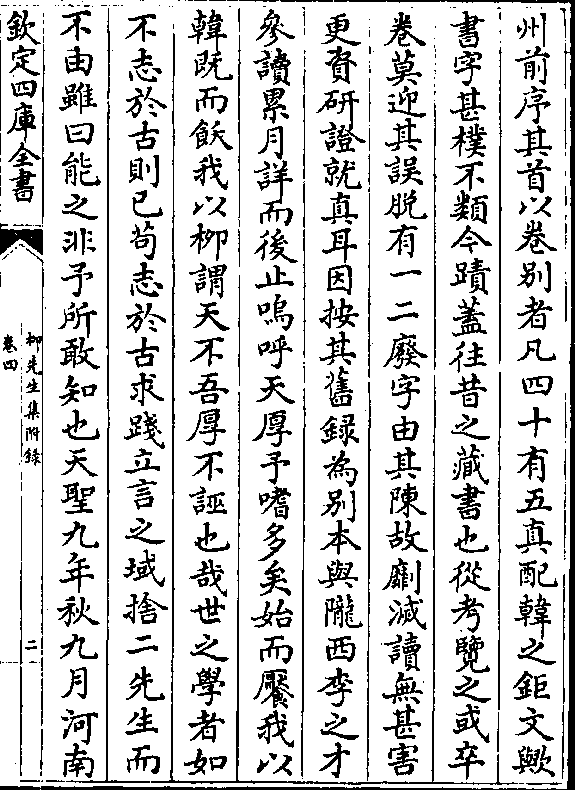 州前序其首以卷别者凡四十有五真配韓之鉅文歟
書字甚樸不類今蹟蓋往昔之藏書也從考覽之或卒
卷莫迎其誤脱有一二廢字由其陳故劘滅讀無甚害
更資研證就真耳因按其舊錄為别本與隴西李之才
參讀累月詳而後止嗚呼天厚予嗜多矣始而饜我以
韓既而飫我以栁謂天不吾厚不誣也哉世之學者如
不志於古則已苟志於古求踐立言之域捨二先生而
不由雖曰能之非予所敢知也天聖九年秋九月河南
欽定四庫全書
栁先生集附錄
卷四
二